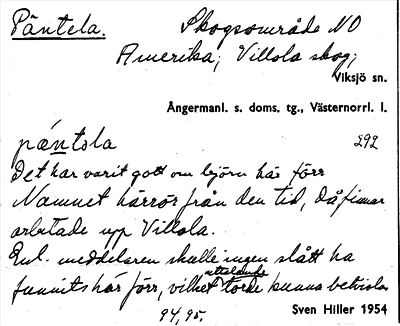 Päntela. Skogsområde NO
Amerika, Villola skog,
Viksjö sn.
Ångermanl. s. doms. tg., Västernorrl. l.
päntəla 292
Det har varit gott om björn här förr
Namnet härrör från den tid, då finnar
arbetade upp Villola.
Enl. meddelaren skulle ingen slått ha
uttalande
funnits här förr, vilket torde kunna betvivlas
94, 95. Sven Hiller 1954